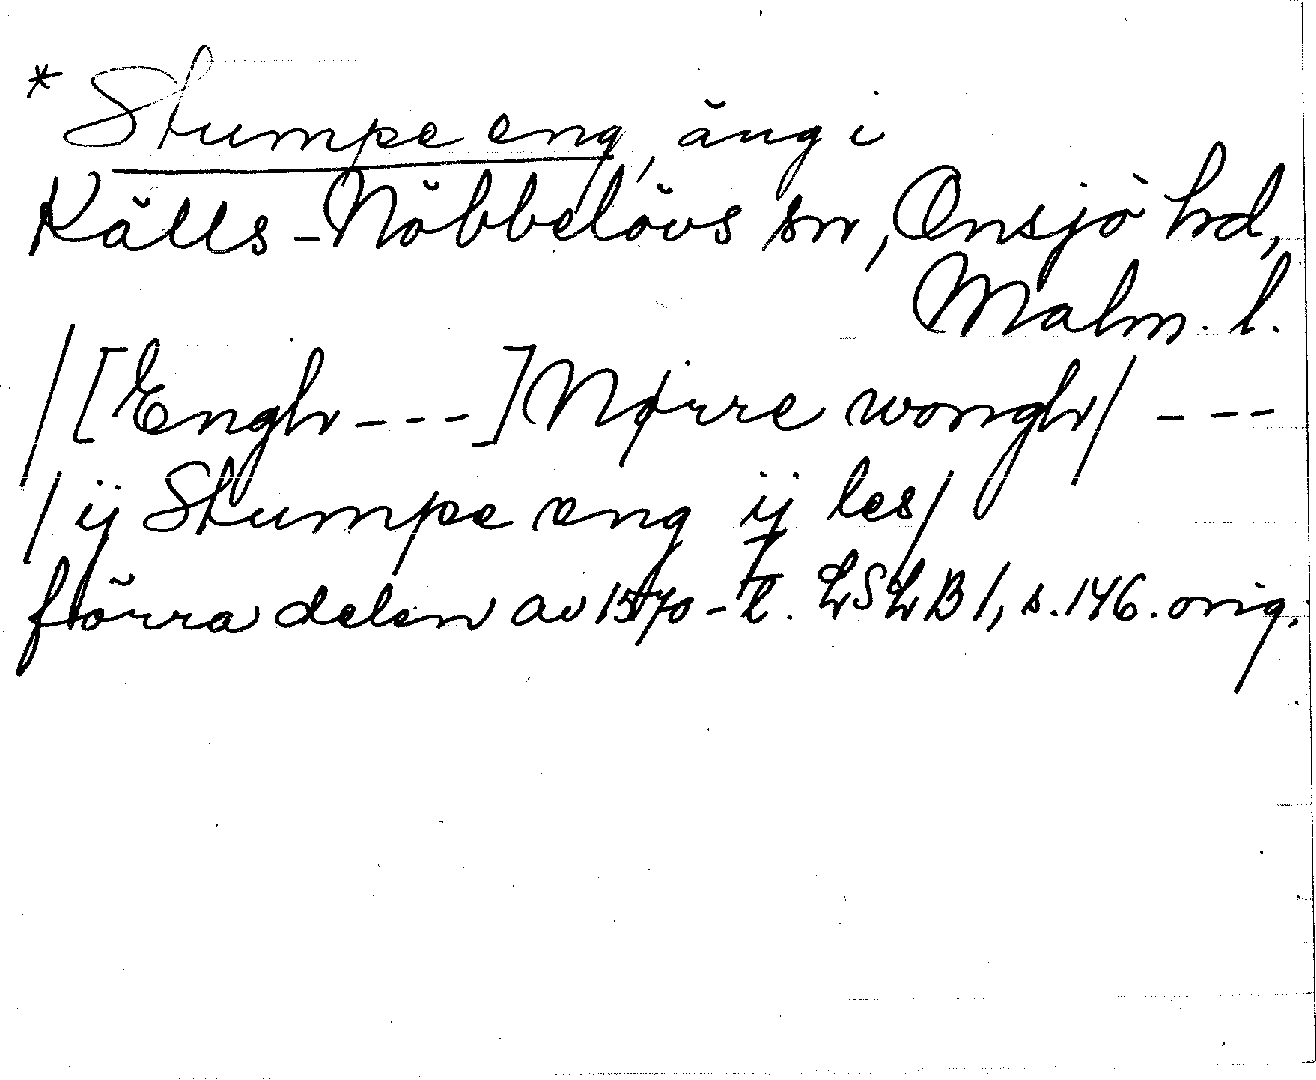 * Stumpe eng, äng i
Källs-Nöbbelövs sn, Onsjö hd,
Malm. l.
/[Engh ---] Nørre wongh/ ---
/ij Stumpe eng ij les/
förra delen av 1570-t. LSLB 1, s. 146. orig.